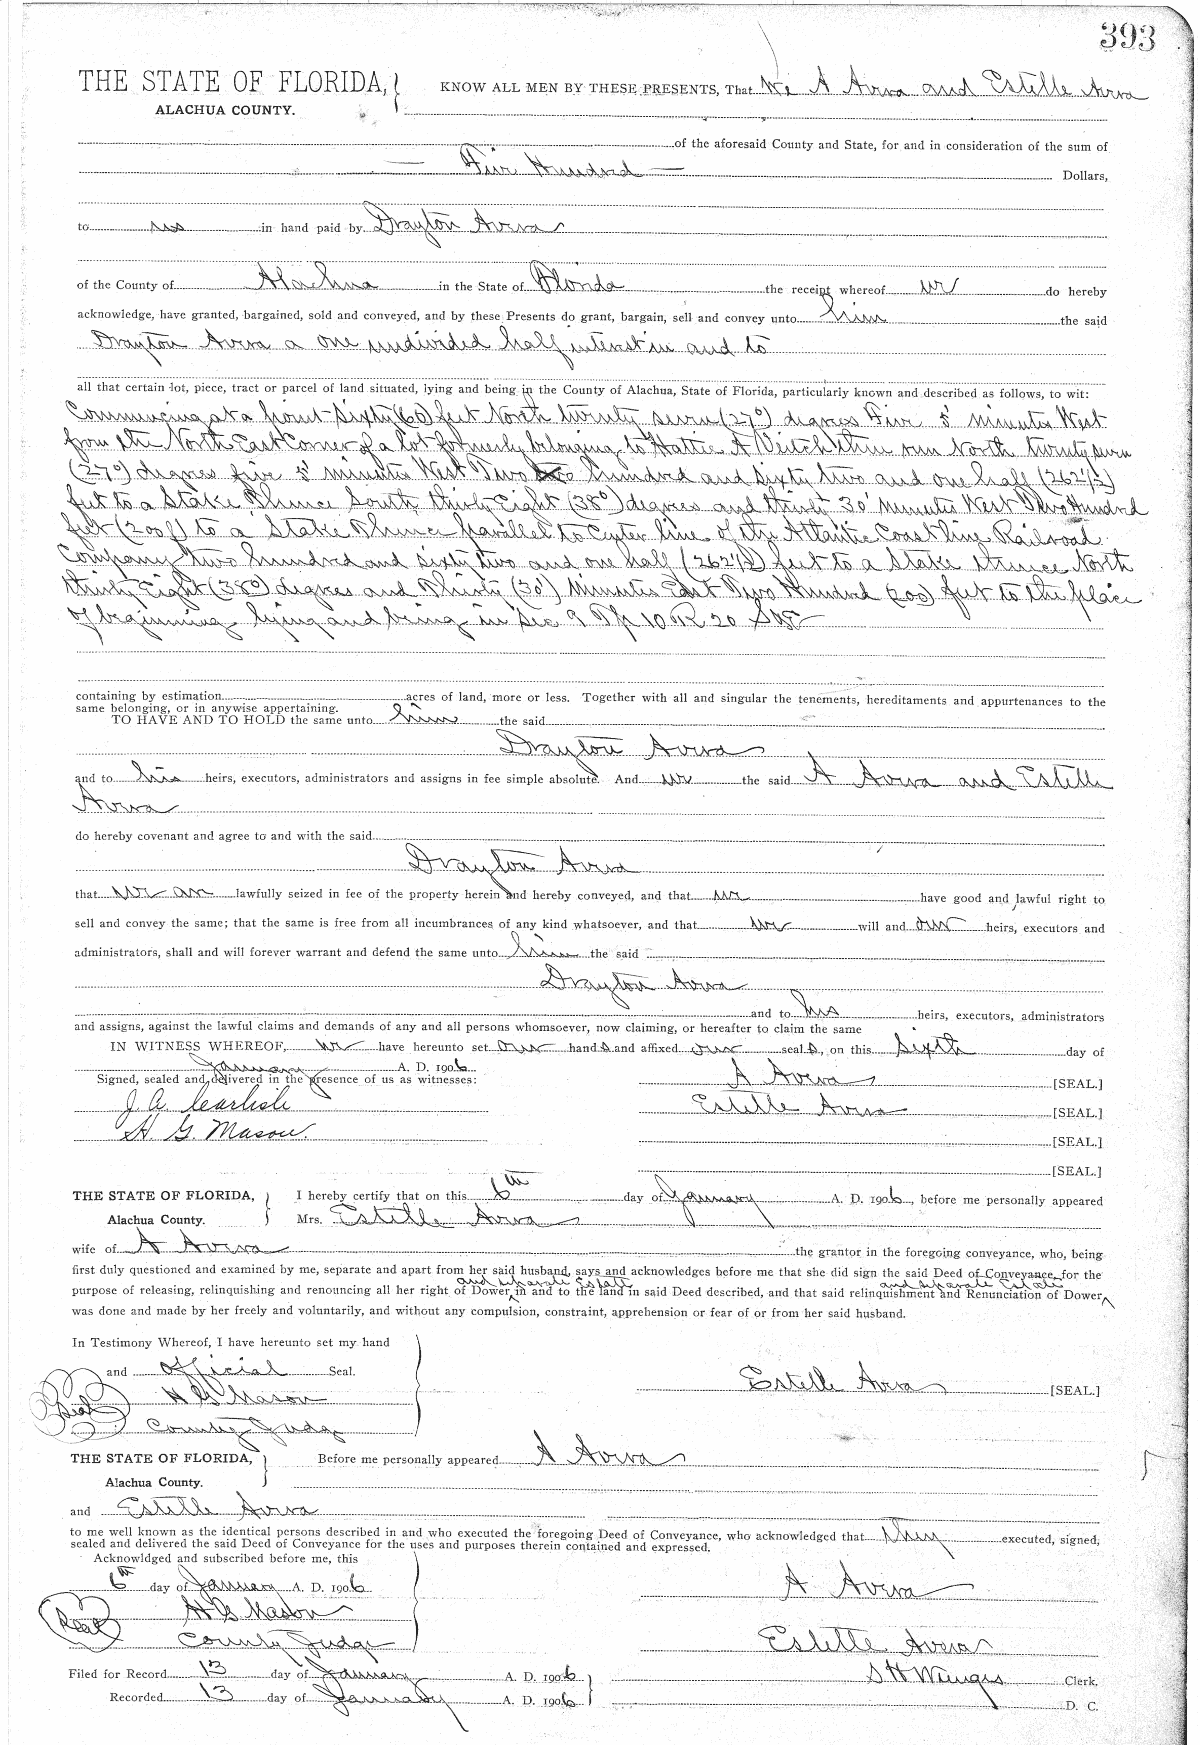 393
THE STATE OF FLORIDA, KNOW ALL MEN BY THESE PRESENTS, That We A Avera and Estelle Avera
ALACHUA COUNTY.
of the aforesaid County and State, for and in consideration of the sum of
— Five Hundred — Dollars,
to us in hand paid by Drayton Avera
of the County of Alachua in the State of Florida the receipt whereof we do hereby
acknowledge, have granted, bargained, sold and conveyed, and by these Presents do grant, bargain, sell and convey unto him the said
Drayton Avera a one undivided half interest in and to
all that certain lot, piece, tract or parcel of land situated, lying and being in the County of Alachua, State of Florida, particularly known and described as follows, to wit:
Commencing at a point Sixty (60) feet North twenty seven (27°) degrees Five 5' minutes West
from the North East Corner of a lot formerly belonging to Hattie A Veitch then run North twenty seven
(27°) degrees five 5' minutes West Two hundred and sixty two and one half (262½)
feet to a Stake Thence South thirty Eight (38°) degrees and thirty 30' minutes West Two Hundred
feet (200) to a Stake Thence parallel to Center line of the Atlantic Coast line Railroad
Company two hundred and sixty two and one half (262½) feet to a Stake thence North
thirty Eight (38°) degrees and Thirty (30') Minutes East Two Hundred (200) feet to the place
of beginning lying and being in Sec 9 Tp 10 R 20 S&E
containing by estimation acres of land, more or less. Together with all and singular the tenements, hereditaments and appurtenances to the
same belonging, or in anywise appertaining.
TO HAVE AND TO HOLD the same unto him the said
Drayton Avera
and to his heirs, executors, administrators and assigns in fee simple absolute. And we the said A Avera and Estelle
Avera
do hereby covenant and agree to and with the said
Drayton Avera
that we are lawfully seized in fee of the property herein and hereby conveyed, and that we have good and lawful right to
sell and convey the same; that the same is free from all incumbrances of any kind whatsoever, and that we will and our heirs, executors and
administrators, shall and will forever warrant and defend the same unto him the said
Drayton Avera
and to his heirs, executors, administrators
and assigns, against the lawful claims and demands of any and all persons whomsoever, now claiming, or hereafter to claim the same
IN WITNESS WHEREOF, we have hereunto set our hands and affixed our seals, on this sixth day of
January A. D. 1906
Signed, sealed and delivered in the presence of us as witnesses: A Avera [SEAL.]
J. A. Carlisle Estelle Avera [SEAL.]
H. G. Mason. [SEAL.]
[SEAL.]
THE STATE OF FLORIDA, I hereby certify that on this 6th day of January A. D. 1906, before me personally appeared
Alachua County. Mrs. Estelle Avera
wife of A Avera the grantor in the foregoing conveyance, who, being
first duly questioned and examined by me, separate and apart from her said husband, says and acknowledges before me that she did sign the said Deed of Conveyance, for the
and separate Estate and separate Estate
purpose of releasing, relinquishing and renouncing all her right of Dower in and to the land in said Deed described, and that said relinquishment and Renunciation of Dower
was done and made by her freely and voluntarily, and without any compulsion, constraint, apprehension or fear of or from her said husband.
In Testimony Whereof, I have hereunto set my hand
and official Seal. Estelle Avera [SEAL.]
Seal H G Mason
County Judge
THE STATE OF FLORIDA, Before me personally appeared A Avera
Alachua County.
and Estelle Avera
to me well known as the identical persons described in and who executed the foregoing Deed of Conveyance, who acknowledged that they executed, signed,
sealed and delivered the said Deed of Conveyance for the uses and purposes therein contained and expressed.
Acknowldged and subscribed before me, this
6th day of January A. D. 1906 A Avera
Seal H G Mason
County Judge Estelle Avera
Filed for Record 13 day of January A. D. 1906 S H Wienges Clerk.
Recorded 13 day of January A. D. 1906 D. C.